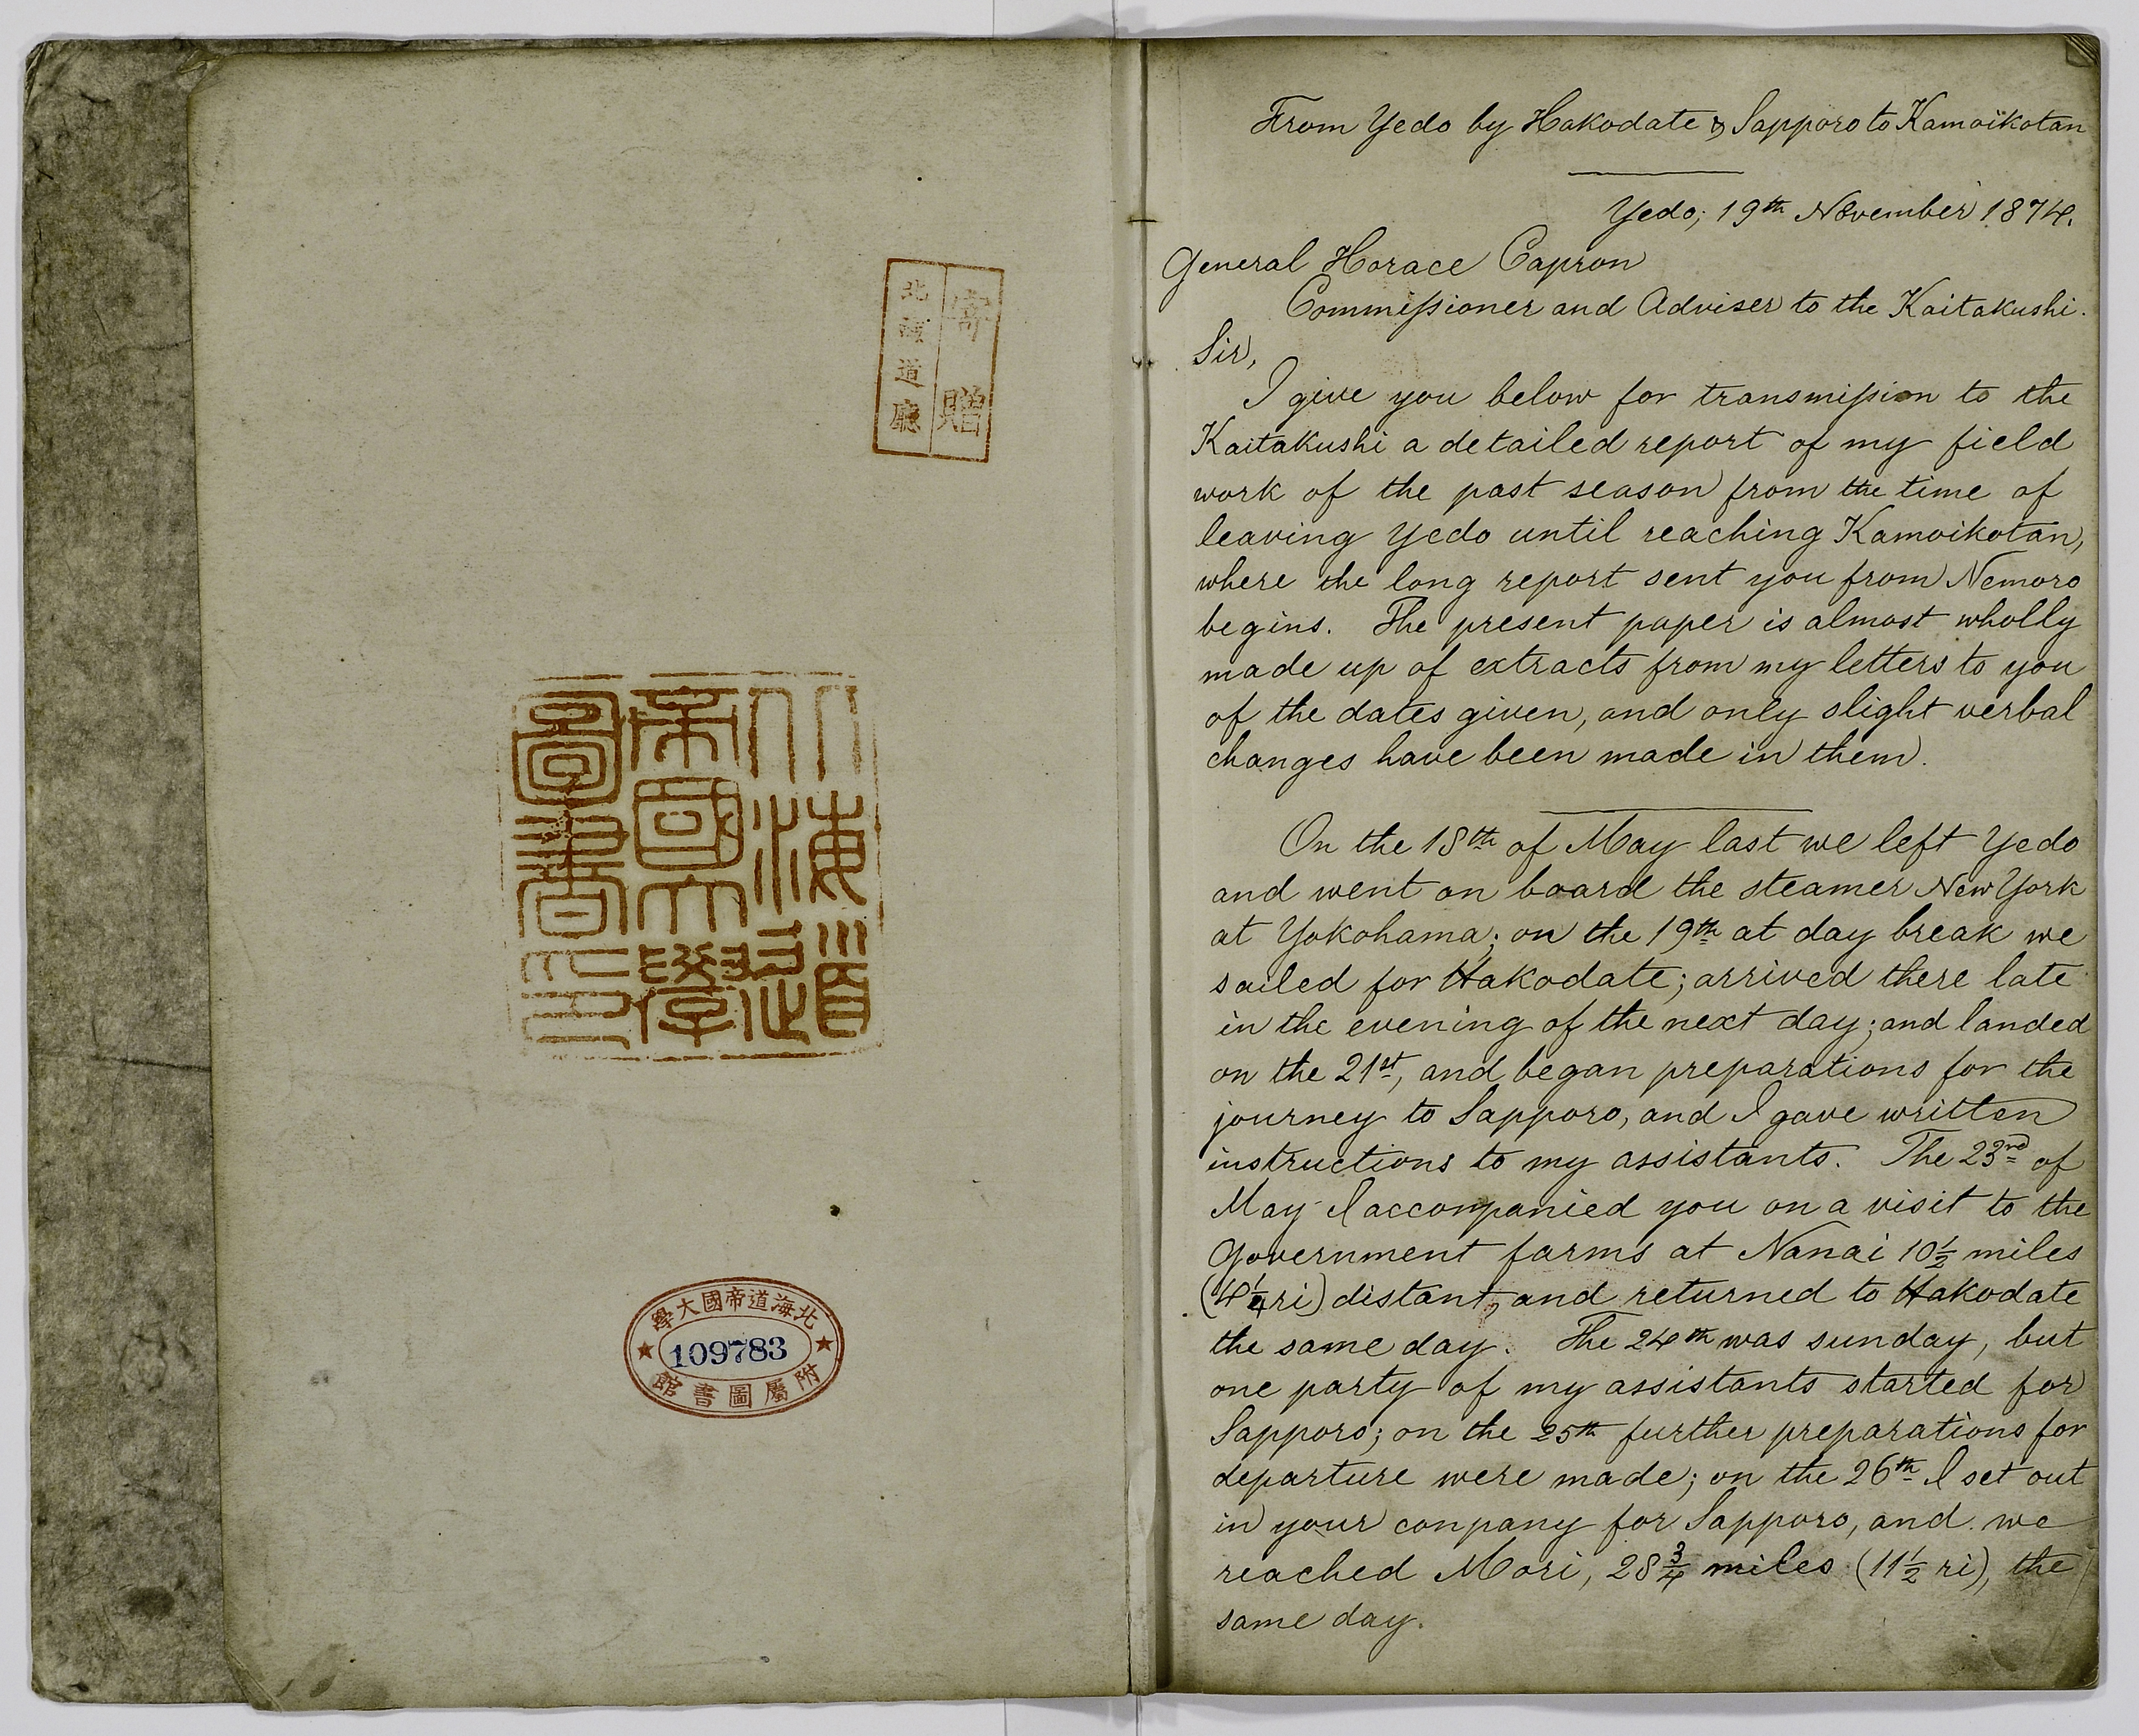 寄贈
北海道廳
北海道帝國大學圖書印
北海道帝國大學
109783
附屬圖書館
From Yedo by Hakodate & Sapporo to Kamoikotan
Yedo; 19th November 1874.
General Horace Capron
Commissioner and Adviser to the Kaitakushi.
Sir,
I give you below for transmission to the
Kaitakushi a detailed report of my field
work of the past season from the time of
leaving Yedo until reaching Kamoikotan,
where the long report sent you from Nemoro
begins. The present paper is almost wholly
made up of extracts from my letters to you
of the dates given, and only slight verbal
changes have been made in them.
On the 18th of May last we left Yedo
and went on board the steamer New York
at Yokohama; on the 19th at day break we
sailed for Hakodate; arrived there late
in the evening of the next day; and landed
on the 21st, and began preparations for the
journey to Sapporo, and I gave written
instructions to my assistants. The 23rd of
May I accompanied you on a visit to the
Government farms at Nanai 10½ miles
(4¼ ri) distant, and returned to Hakodate
the same day. The 24th was sunday, but
one party of my assistants started for
Sapporo; on the 25th further preparations for
departure were made; on the 26th I set out
in your conpany for Sapporo, and we
reached Mori, 28¾ miles (11½ ri), the
same day.